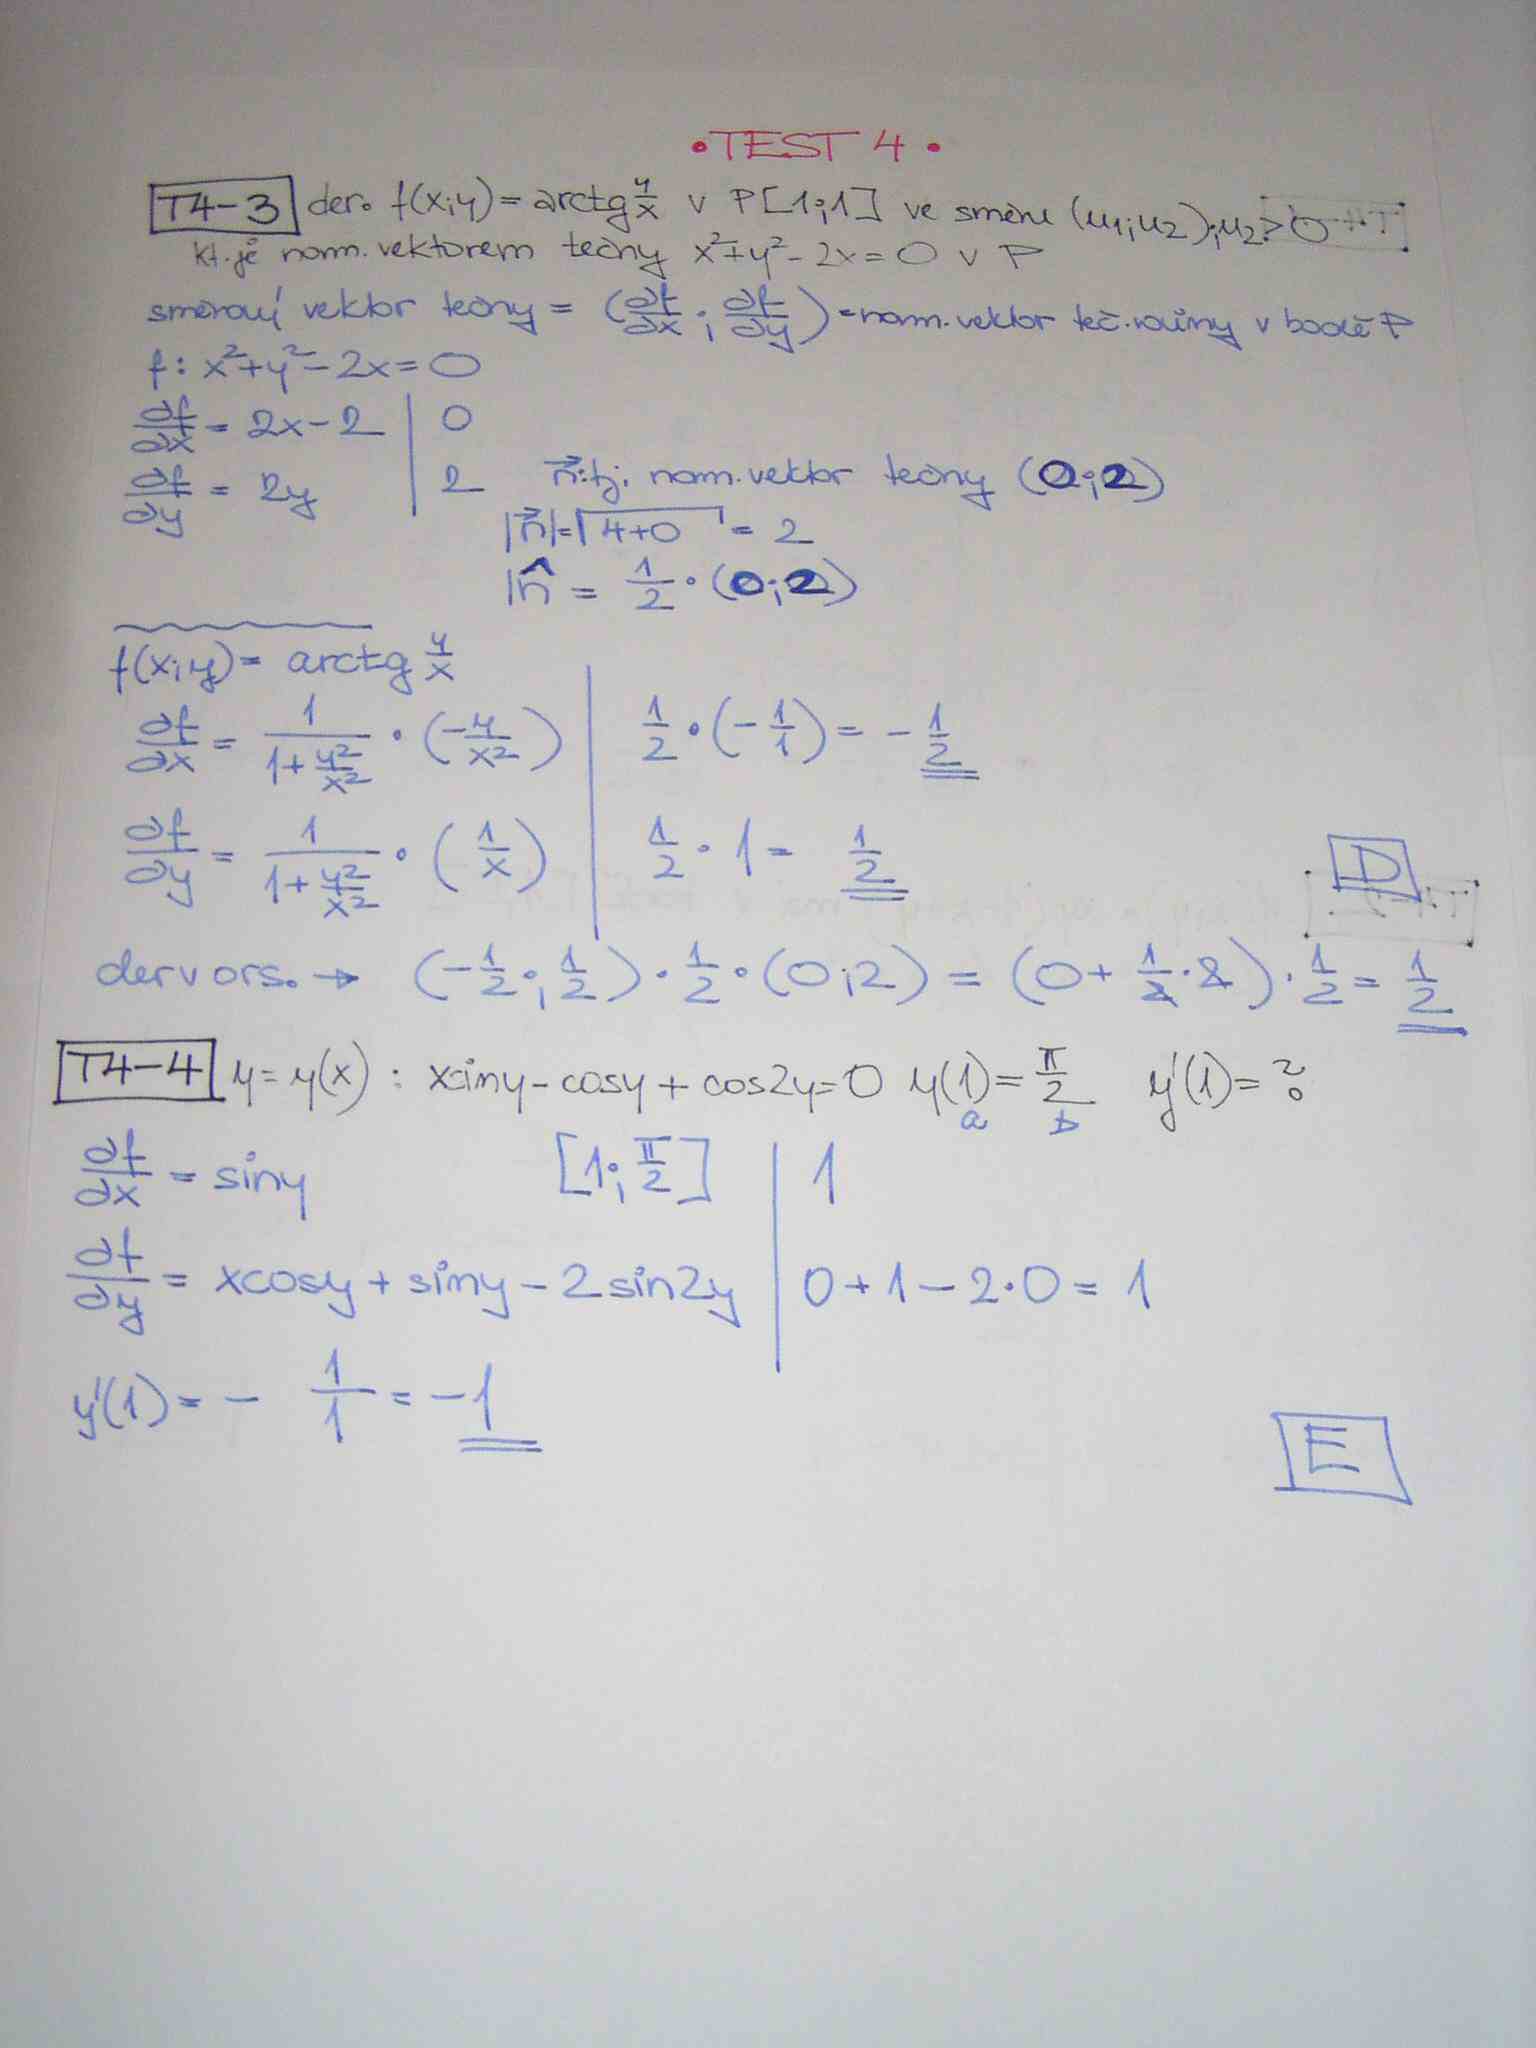 • TEST 4 •
T4-3 der. f(x;y) = arctg y/x v P[1;1] ve směru (u1;u2);u2>0
kt. je norm. vektorem tečny x²+y²-2x=0 v P
směrový vektor tečny = (∂f/∂x ; ∂f/∂y) = norm. vektor teč. roviny v bodě P
f: x²+y²-2x=0
∂f/∂x = 2x-2 | 0
∂f/∂y = 2y | 2 n⃗: tj. norm. vektor tečny (0;2)
|n⃗| = √4+0 = 2
|n̂ = 1/2 · (0;2)
f(x;y) = arctg y/x
∂f/∂x = 1/(1+y²/x²) · (-y/x²) | 1/2 · (-1/1) = -1/2
∂f/∂y = 1/(1+y²/x²) · (1/x) | 1/2 · 1 = 1/2
D
der v ors. → (-1/2 ; 1/2) · 1/2 · (0;2) = (0 + 1/2 · 2) · 1/2 = 1/2
T4-4 y = y(x) : xsiny - cosy + cos2y = 0 y(1) = π/2 y'(1) = ?
a b
∂f/∂x = siny [1; π/2] | 1
∂f/∂y = xcosy + siny - 2sin2y | 0 + 1 - 2·0 = 1
y'(1) = - 1/1 = -1
E